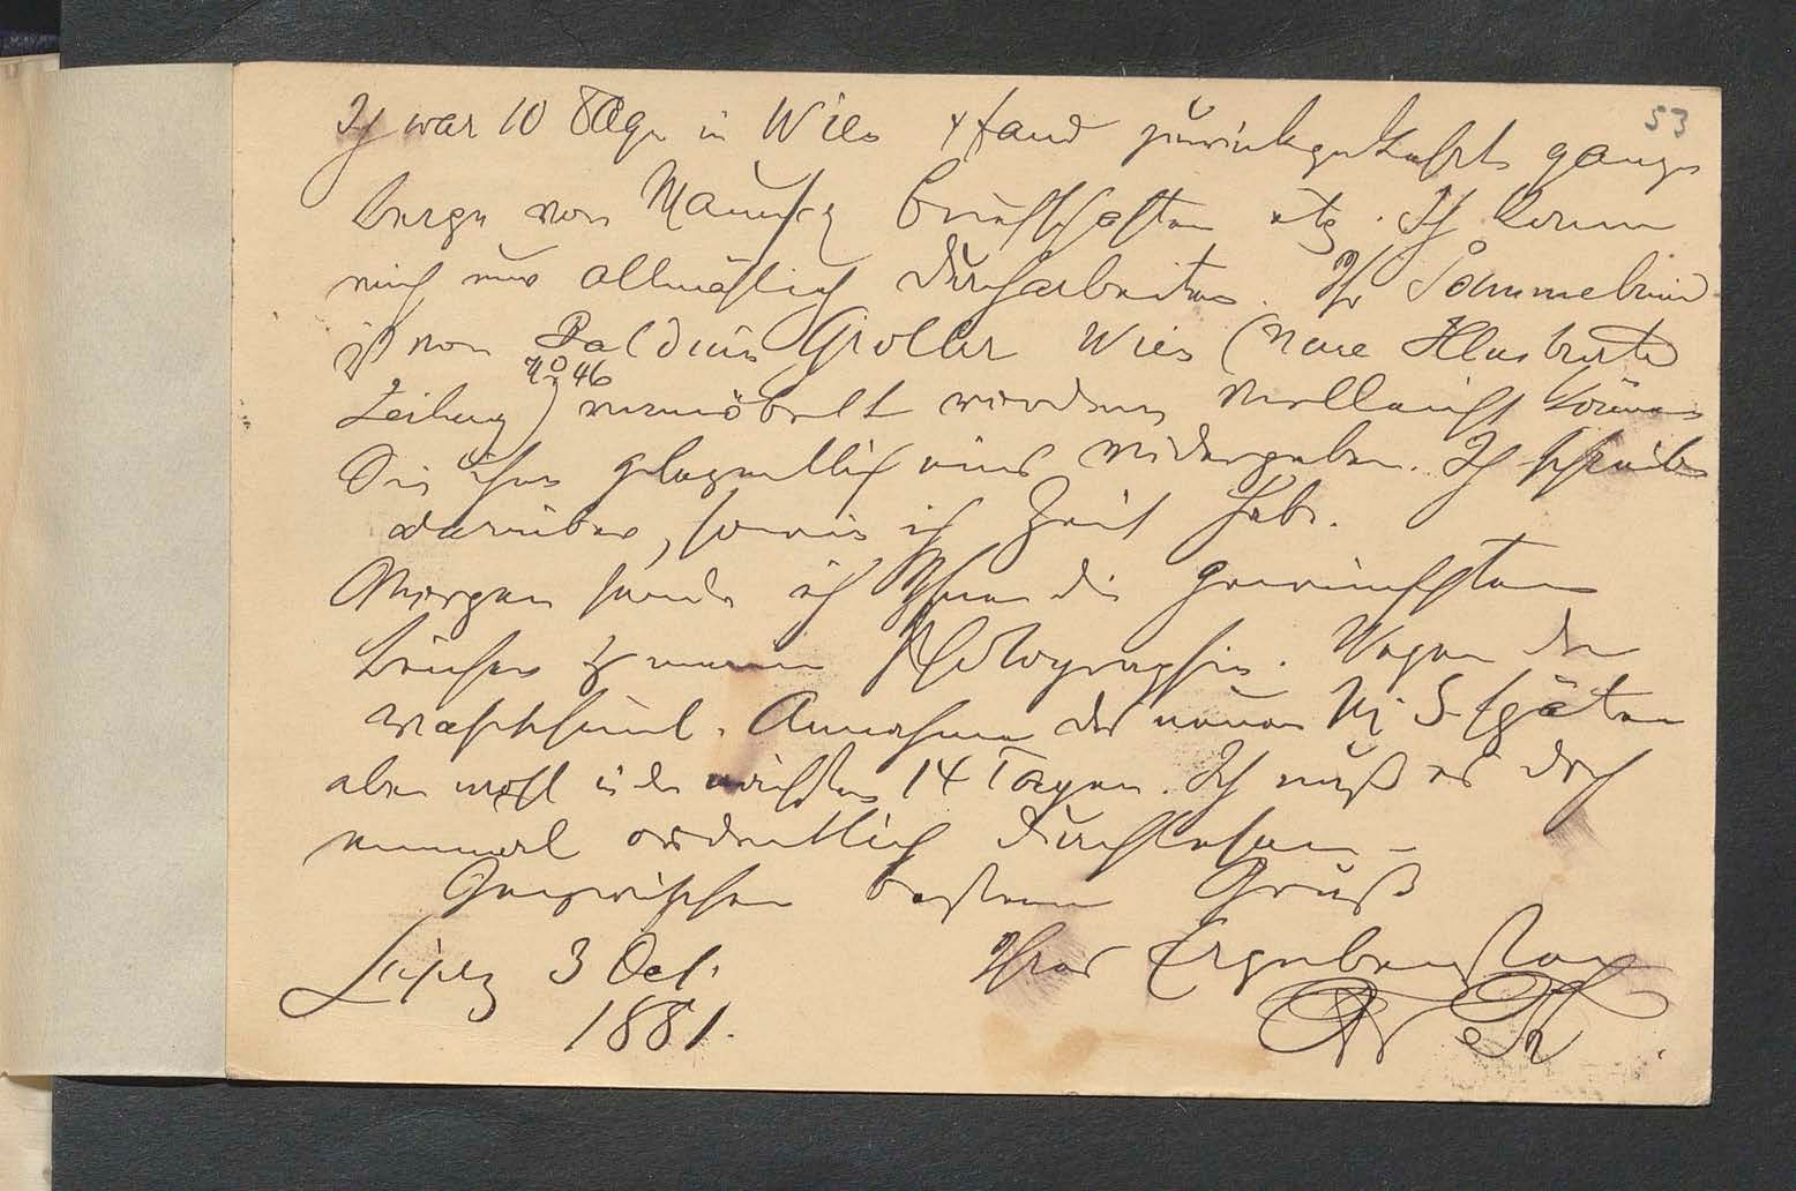 53
Ich war 10 Tage in Wien & fand zurückgekehrt ganze
Berge von Manuscr Briefschaften etz. Ich kann
mich nur allmählich durcharbeiten. Ihr Sammelbrief
ist von Balduin Groller Wien (Neue Illustrirte
Zeitung No 46) vermöbelt worden, vielleicht können
Sie ihm gelegentlich eins wiedergeben. Ich schreibe
darüber, sowie ich Zeit habe.
Morgen sende ich Ihnen die gewünschten
Bücher & meine Photographie. Wegen der
wahrscheinl. Annahme des neuen M. S. später
aber wohl in den nächsten 14 Tagen. Ich muß es doch
einmal ordentlich durchlesen –
Inzwischen besten Gruß
Leipzig 3 Oct. Ihres Ergebensten
1881.